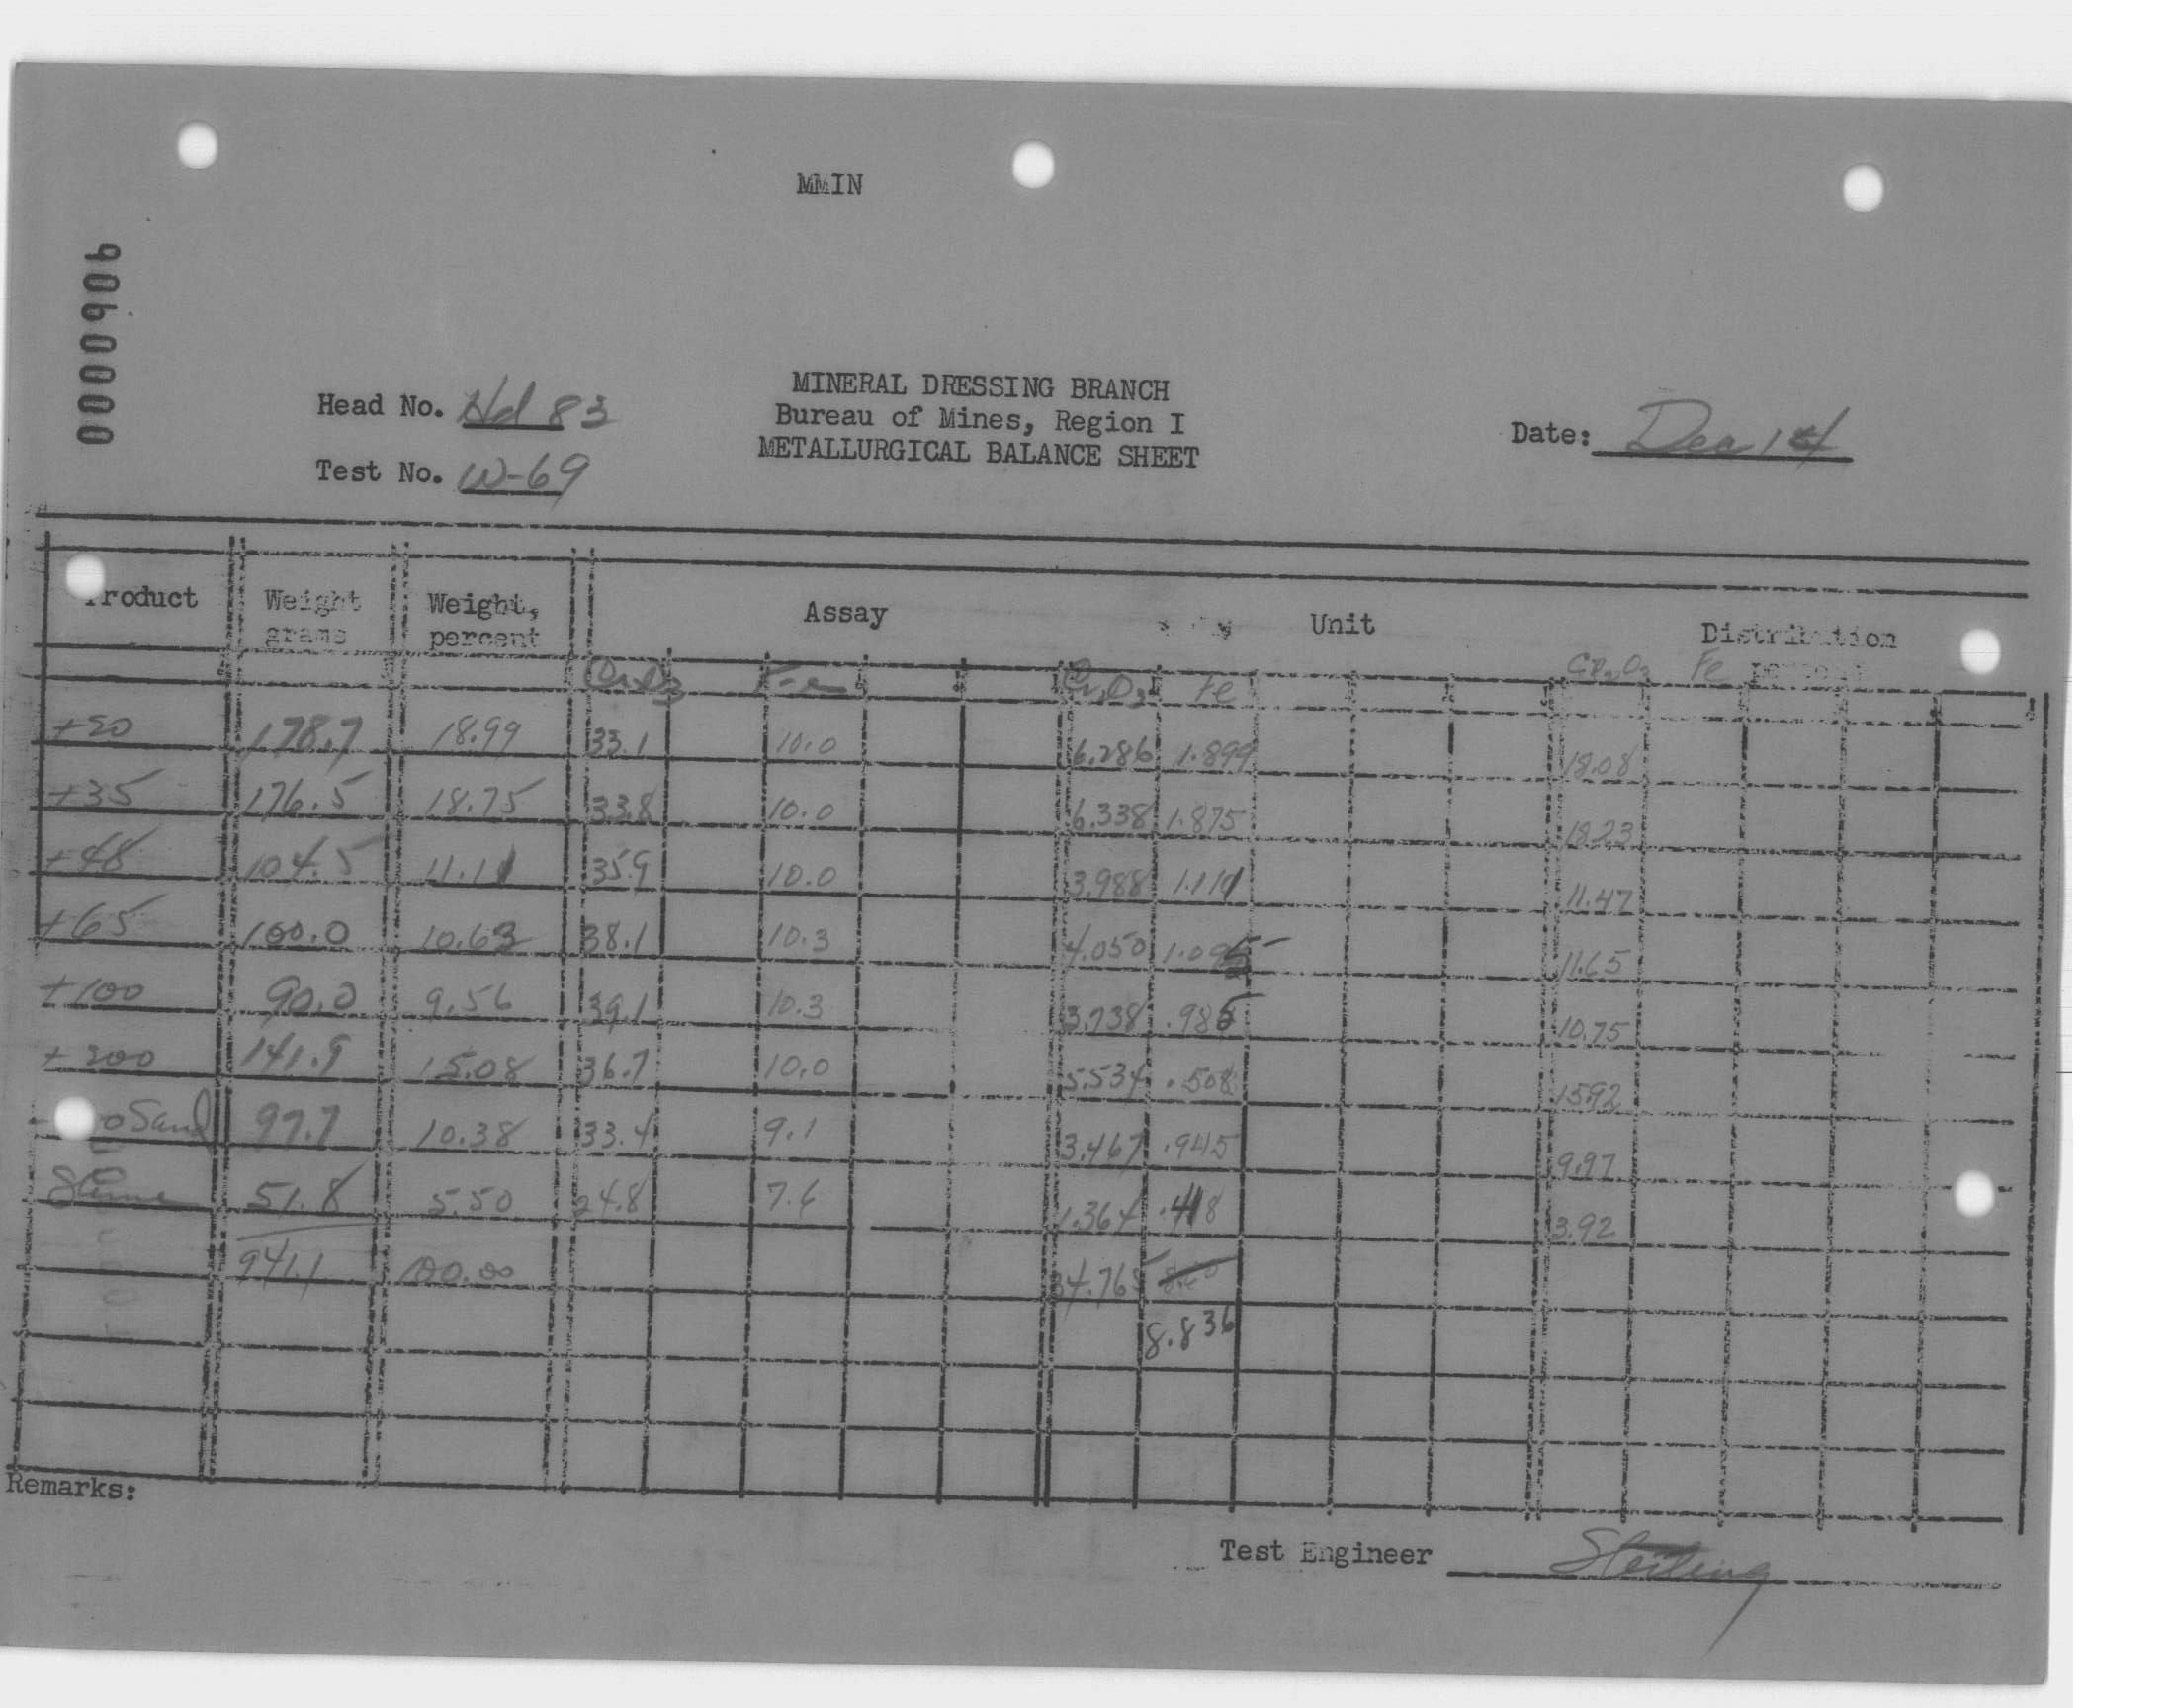 MMIN
0000906
MINERAL DRESSING BRANCH
Head No. Hd 83 Bureau of Mines, Region I Date: Dec 14
METALLURGICAL BALANCE SHEET
Test No. W-69
Product Weight grams Weight, percent Assay Unit Distribution percent
Cr2O3 Fe Cr2O3 Fe Cr2O3 Fe
+20 178.7 18.99 33.1 10.0 6.286 1.899 18.08
+35 176.5 18.75 33.8 10.0 6.338 1.875 18.23
+48 104.5 11.11 35.9 10.0 3.988 1.111 11.47
+65 100.0 10.63 38.1 10.3 4.050 1.095 11.65
+100 90.0 9.56 39.1 10.3 3.738 .985 10.75
+200 141.9 15.08 36.7 10.0 5.534 .508 15.92
Sand 97.7 10.38 33.4 9.1 3.467 .945 9.97
Slime 51.8 5.50 24.8 7.6 1.364 .418 3.92
941.1 100.00 34.765
8.836
Remarks:
Test Engineer Sterling